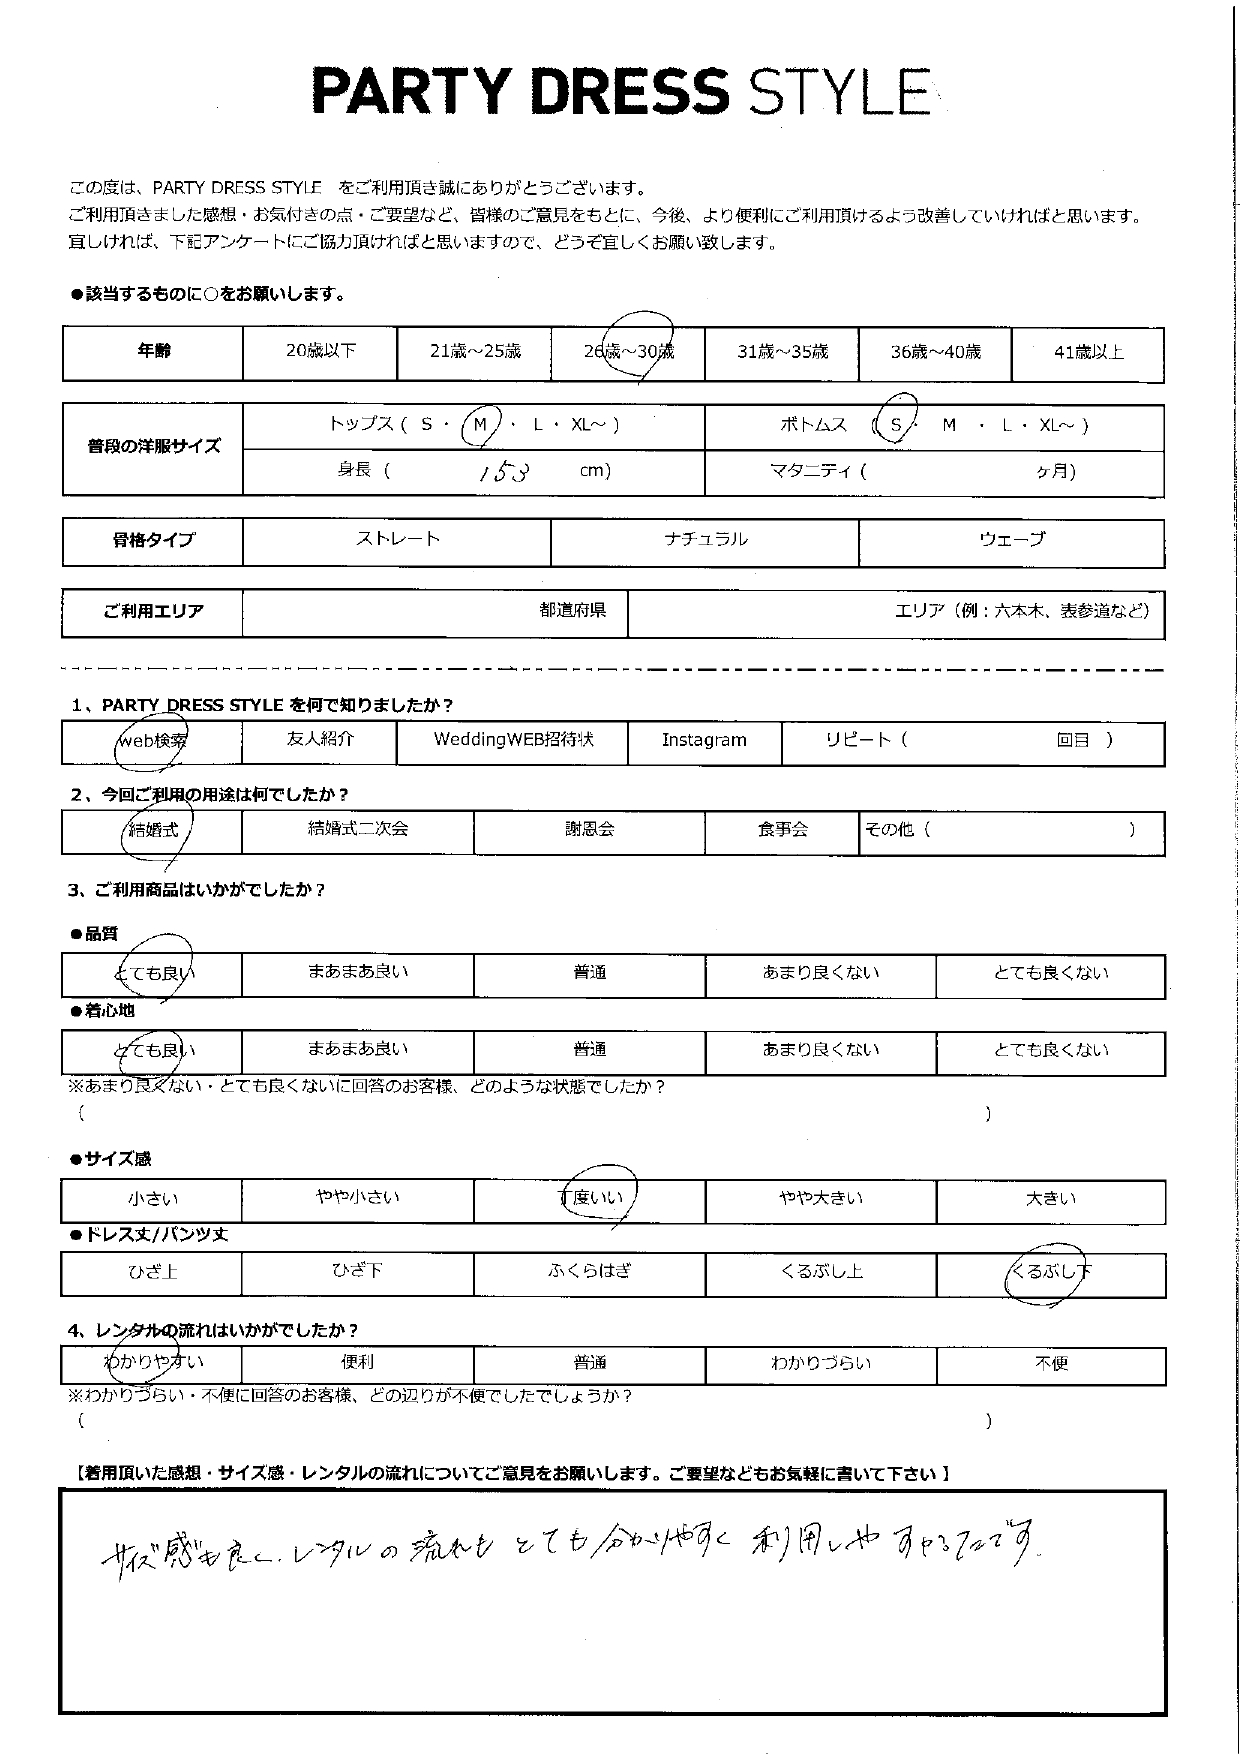 PARTY DRESS STYLE
この度は、PARTY DRESS STYLE　をご利用頂き誠にありがとうございます。
ご利用頂きました感想・お気付きの点・ご要望など、皆様のご意見をもとに、今後、より便利にご利用頂けるよう改善していければと思います。
宜しければ、下記アンケートにご協力頂ければと思いますので、どうぞ宜しくお願い致します。
●該当するものに○をお願いします。
年齢 20歳以下 21歳～25歳 26歳～30歳 31歳～35歳 36歳～40歳 41歳以上
普段の洋服サイズ トップス ( S ・ M ・ L ・ XL～ ) ボトムス ( S ・ M ・ L ・ XL～ )
身長 ( 153 cm) マタニティ ( ヶ月)
骨格タイプ ストレート ナチュラル ウェーブ
ご利用エリア 都道府県 エリア（例：六本木、表参道など）
1、PARTY DRESS STYLE を何で知りましたか？
web検索 友人紹介 WeddingWEB招待状 Instagram リピート（ 回目 ）
2、今回ご利用の用途は何でしたか？
結婚式 結婚式二次会 謝恩会 食事会 その他（ ）
3、ご利用商品はいかがでしたか？
●品質
とても良い まあまあ良い 普通 あまり良くない とても良くない
●着心地
とても良い まあまあ良い 普通 あまり良くない とても良くない
※あまり良くない・とても良くないに回答のお客様、どのような状態でしたか？
（ ）
●サイズ感
小さい やや小さい 丁度いい やや大きい 大きい
●ドレス丈/パンツ丈
ひざ上 ひざ下 ふくらはぎ くるぶし上 くるぶし下
4、レンタルの流れはいかがでしたか？
わかりやすい 便利 普通 わかりづらい 不便
※わかりづらい・不便に回答のお客様、どの辺りが不便でしたでしょうか？
（ ）
【着用頂いた感想・サイズ感・レンタルの流れについてご意見をお願いします。ご要望などもお気軽に書いて下さい 】
サイズ感も良く、レンタルの流れも とても分かりやすく 利用しやすかったです.